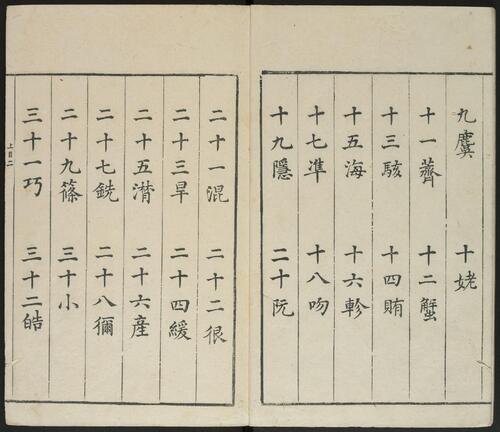 九麌 十姥
十一薺 十二蟹
十三駭 十四賄
十五海 十六軫
十七準 十八吻
十九隱 二十阮
二十一混 二十二很
二十三旱 二十四緩
二十五潸 二十六產
二十七銑 二十八獮
二十九篠 三十小
三十一巧 三十二皓
上目二